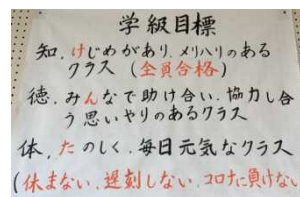 学級目標
知、けじめがあり、メリハリのある
クラス（全員合格）
徳、みんなで助け合い、協力し合
う思いやりのあるクラス
体、たのしく、毎日元気なクラス
（休まない、遅刻しない、コロナに負けない